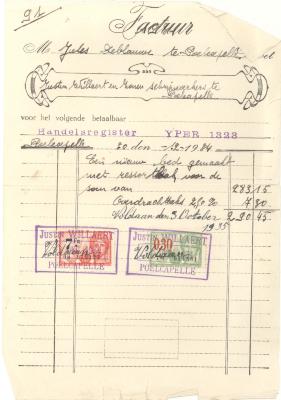 Factuur
M. Jules Deblauwe te Poelcapelle
aan
Justin Willaert en Zonen schrijnwerkers te
Poelcapelle
voor het volgende betaalbaar
Handelsregister YPER 1323
Poelcapelle 20 den -12-1934
Een nieuw bed gemaakt
met ressort voor de
som van 283 15
Overdrachttaks 7 30
Voldaan den 3 October 290 45
1935
JUSTIN WILLAERT JUSTIN WILLAERT
7 0,30
Voldaan Voldaan
POELCAPELLE POELCAPELLE